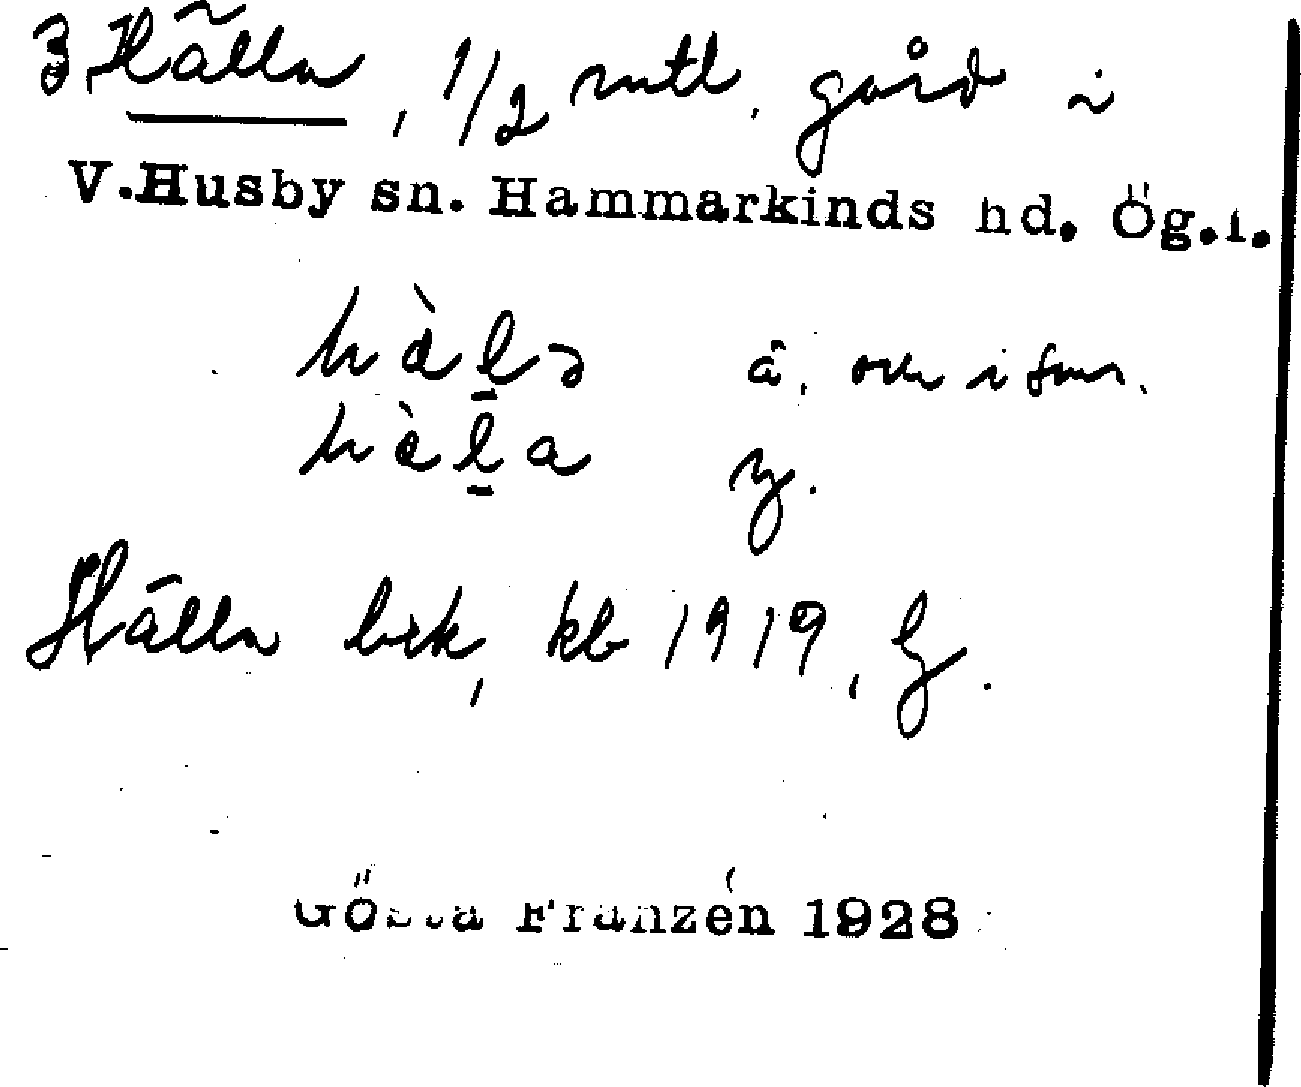 3 Hälla, 1/2 mtl. gård i
V.Husby sn. Hammarkinds hd. Ög.l.
hàlə ä. och i sms.
hàla y.
Hälla bek, kb 1919, y.
Gösta Franzén 1928